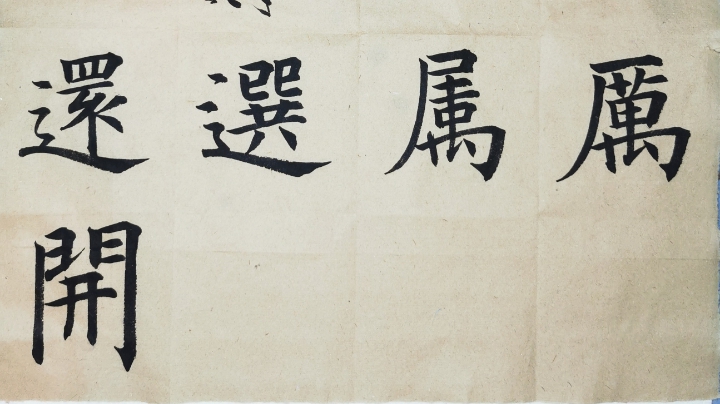 還選属厲
開